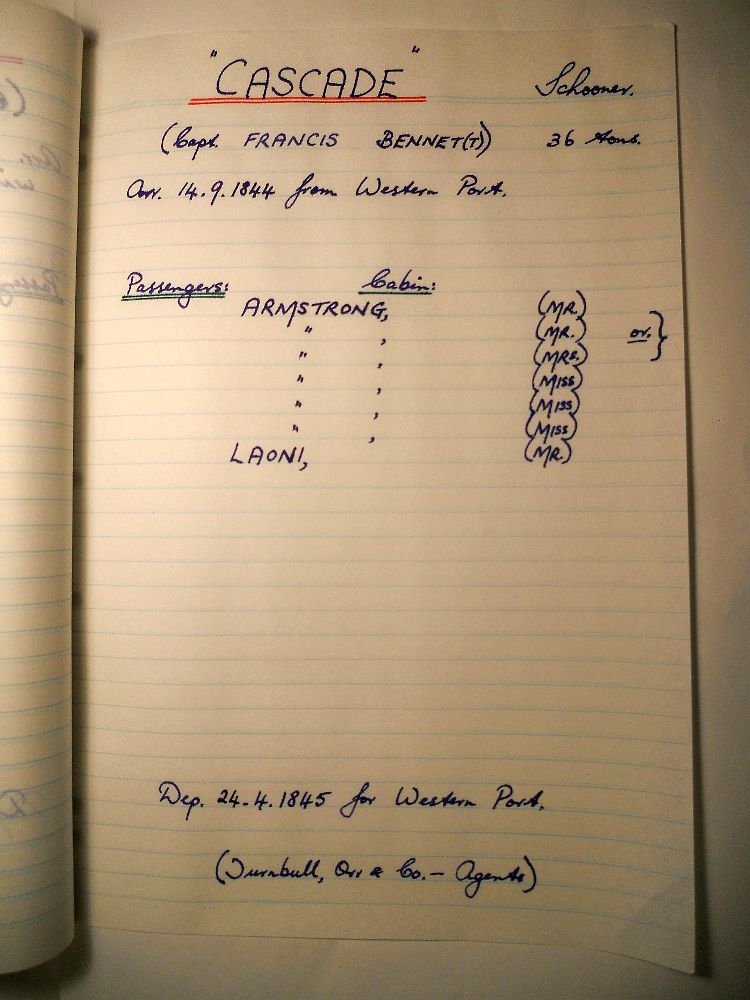 "CASCADE" Schooner.
(Capt. FRANCIS BENNET(T)) 36 tons.
Arr. 14.9.1844 from Western Port.
Passengers: Cabin:
ARMSTRONG, (MR.)
" , (MR. or. }
" , (MRS.)
" , (MISS)
" , (MISS)
" , (MISS)
LAONI, (MR.)
Dep. 24.4.1845 for Western Port.
(Turnbull, Orr & Co. - Agents)